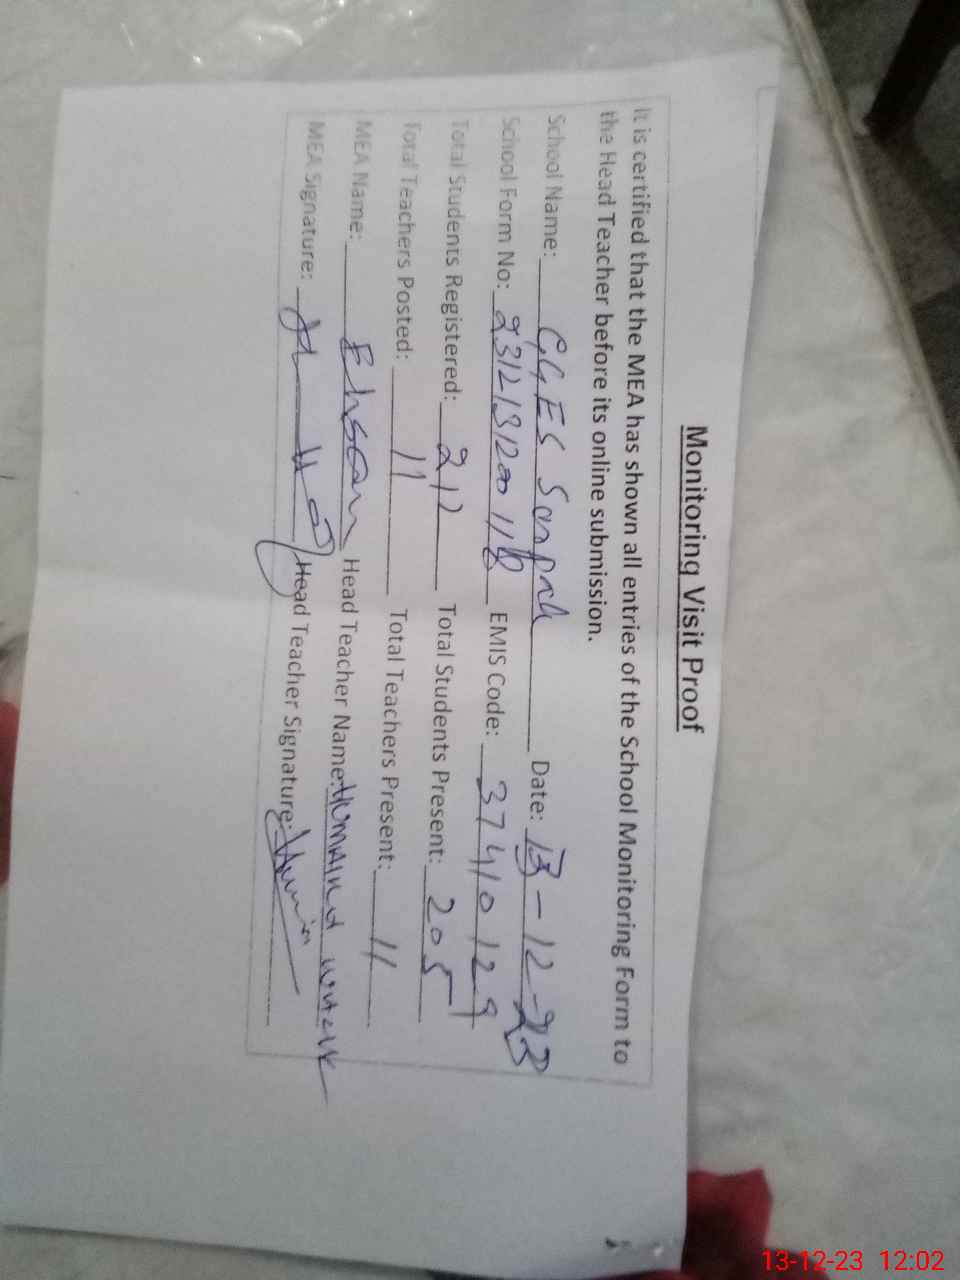 Monitoring Visit Proof
It is certified that the MEA has shown all entries of the School Monitoring Form to
the Head Teacher before its online submission.
School Name: GGES Date: 13-12-23
School Form No: EMIS Code: 37410129
Total Students Registered: 212 Total Students Present: 205
Total Teachers Posted: 11 Total Teachers Present: 11
MEA Name: Ehsan Head Teacher Name: HUMAIRA
MEA Signature: Head Teacher Signature:
13-12-23 12:02